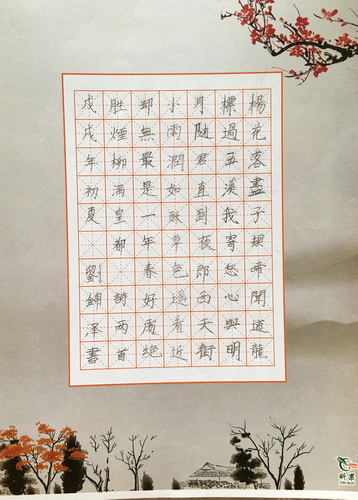 楊花落盡子規啼聞道龍
標過五溪我寄愁心與明
月随君直到夜郎西天街
小雨潤如酥草色遥看近
却無最是一年春好處絕
胜煙柳滿皇都 詩两首
戊戌年初夏 劉錦泽書
昕果
XIN GUO